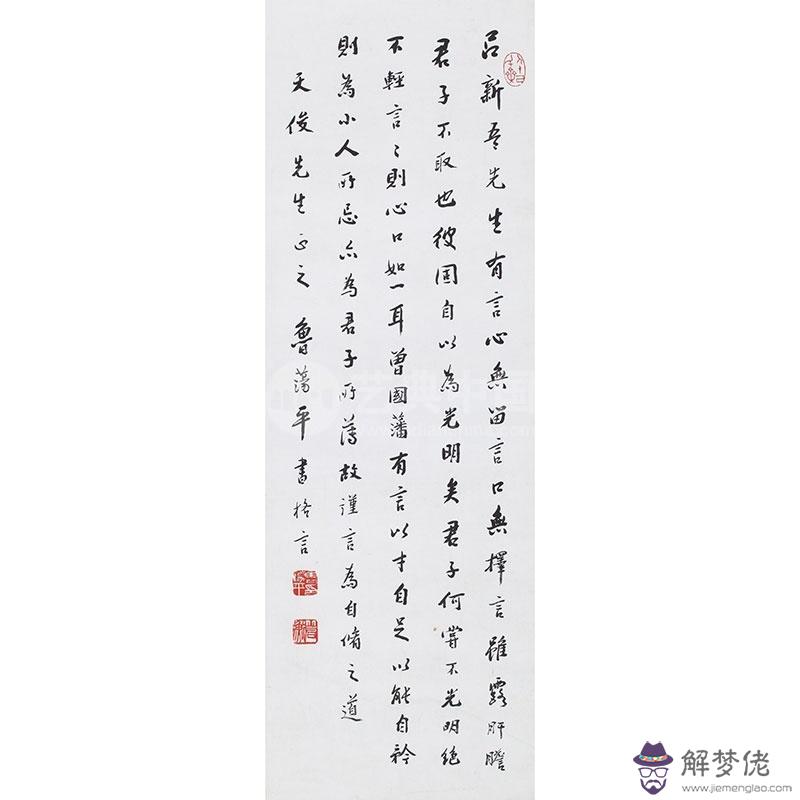 呂新吾先生有言心無留言口無擇言雖露肝膽
君子不取也彼固自以為光明矣君子何嘗不光明絕
不輕言〻則心口如一耳曾國藩有言以才自足以能自矜
則為小人所忌亦為君子所薄故謹言為自脩之道
天俊先生正之 魯蕩平書格言
艺典中国
解梦佬
www.jiemenglao.com